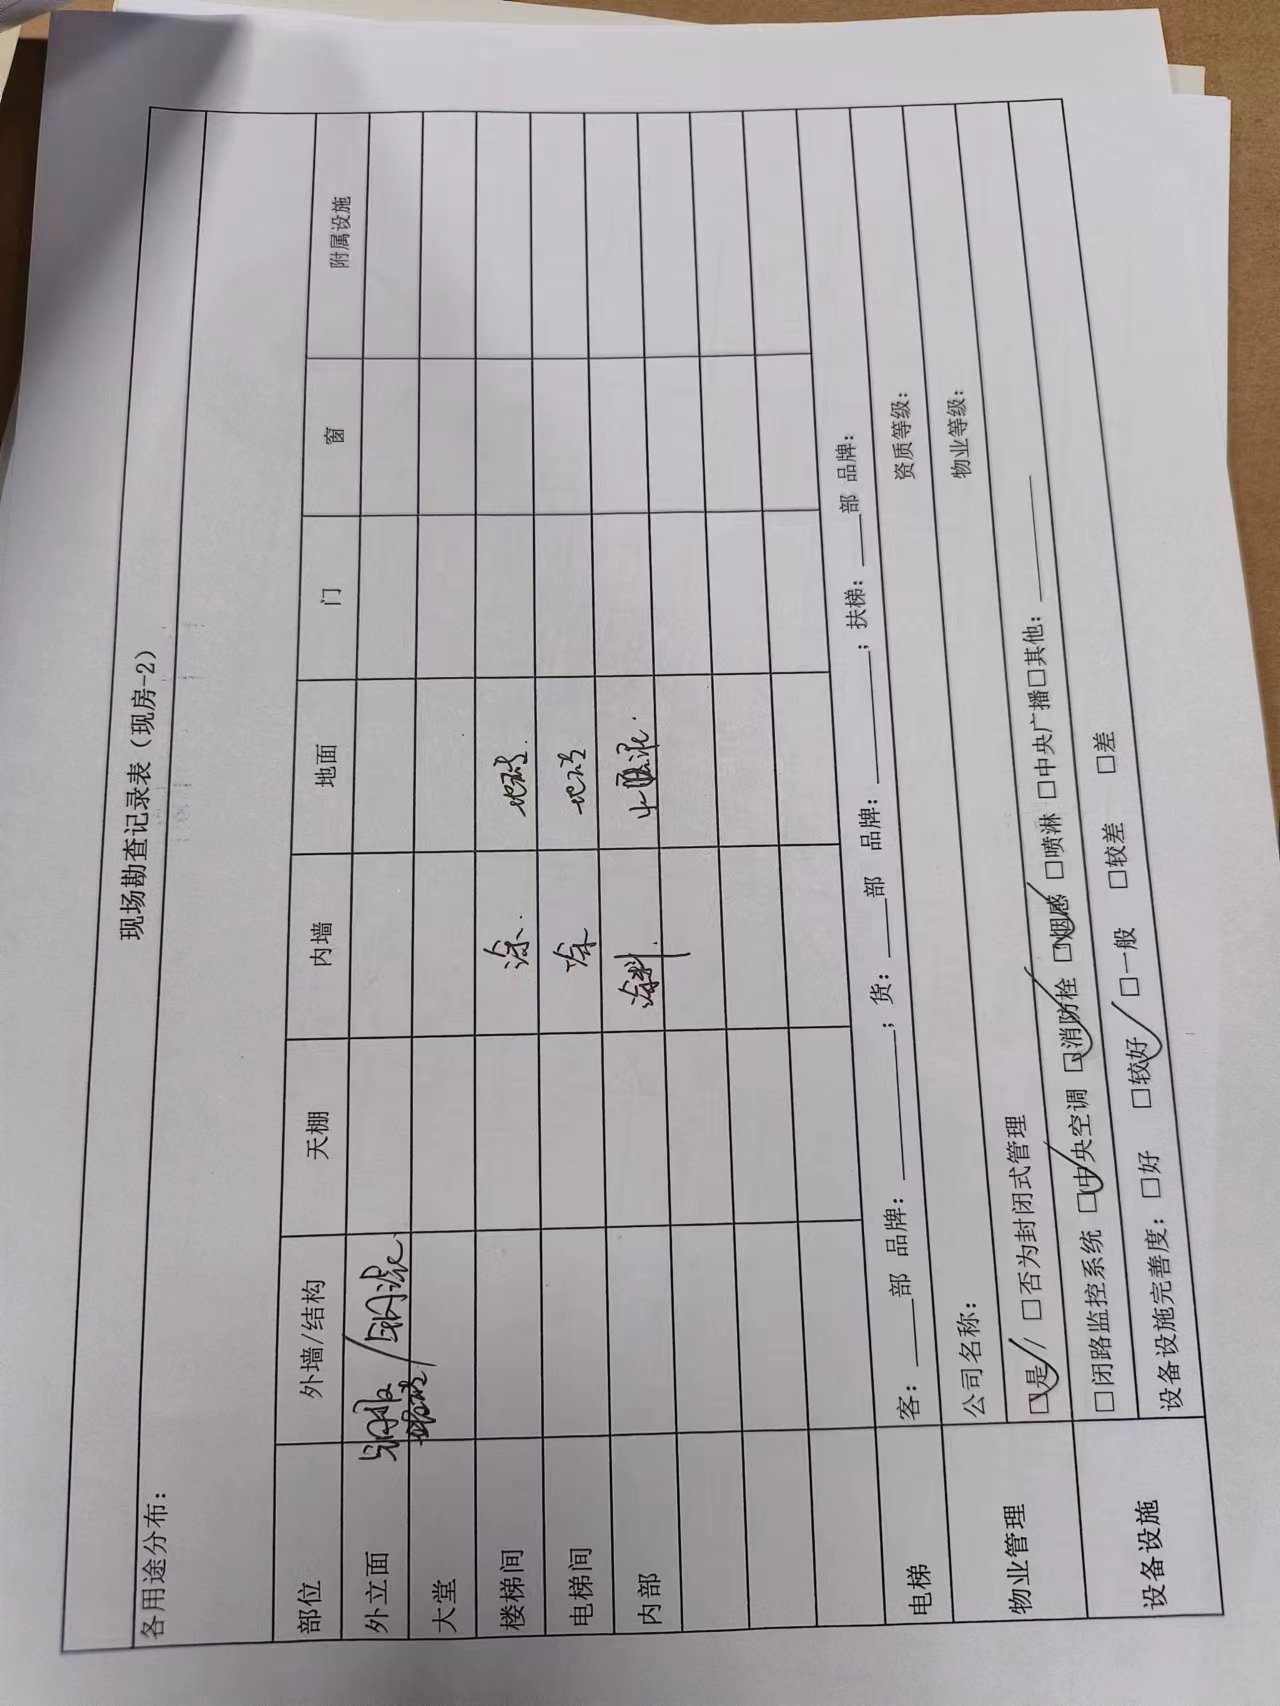 现场勘查记录表（现房-2）
各用途分布：
部位 外墙/结构 天棚 内墙 地面 门 窗 附属设施
外立面 /钢混
大堂 地砖
楼梯间 涂 地砖
电梯间 涂 地砖
内部 涂料
电梯 客：____部 品牌：________；货：____部 品牌：________；扶梯：____部 品牌：
物业管理 公司名称： 资质等级：
☑是/ □否为封闭式管理 物业等级：
设备设施 □闭路监控系统 ☑中央空调 ☑消防栓 ☑烟感 □喷淋 □中央广播□其他：________
设备设施完善度：□好 ☑较好 □一般 □较差 □差